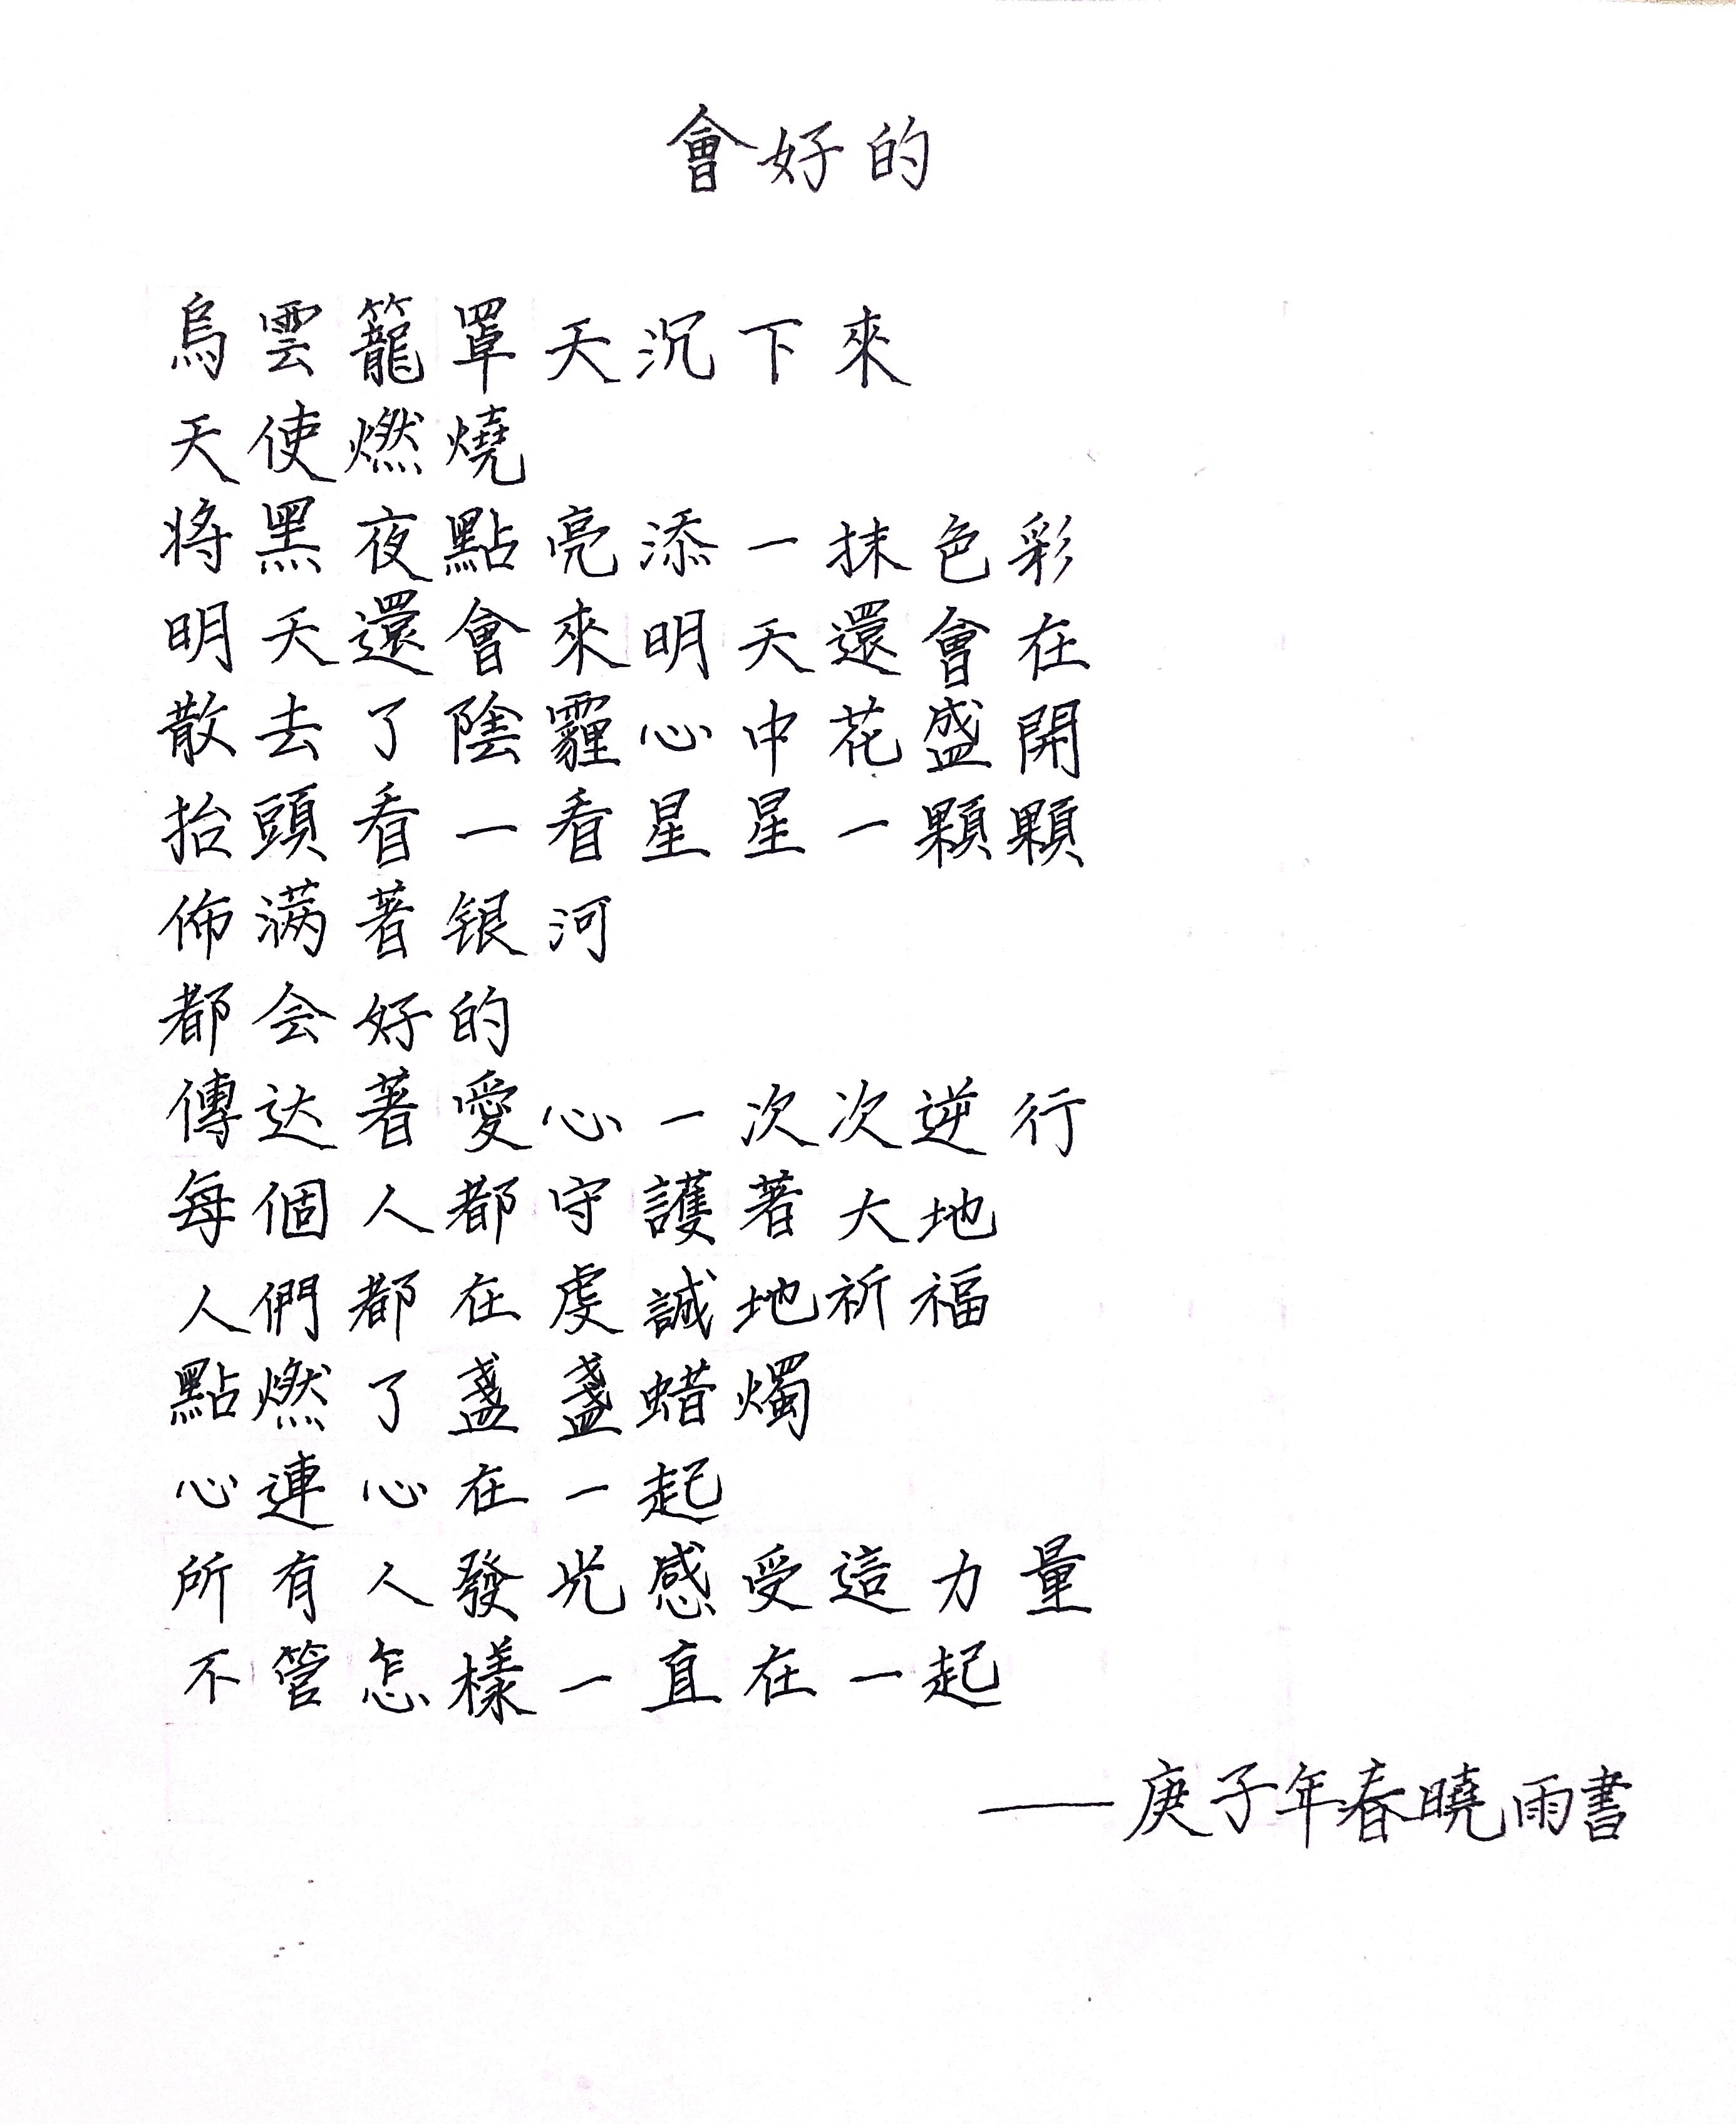 會好的
烏雲籠罩天沉下來
天使燃燒
将黑夜點亮添一抹色彩
明天還會來明天還會在
散去了陰霾心中花盛開
抬頭看一看星星一顆顆
佈满著银河
都会好的
傳达著愛心一次次逆行
每個人都守護著大地
人們都在虔誠地祈福
點燃了盞盞蜡燭
心連心在一起
所有人發光感受這力量
不管怎樣一直在一起
——庚子年春曉雨書